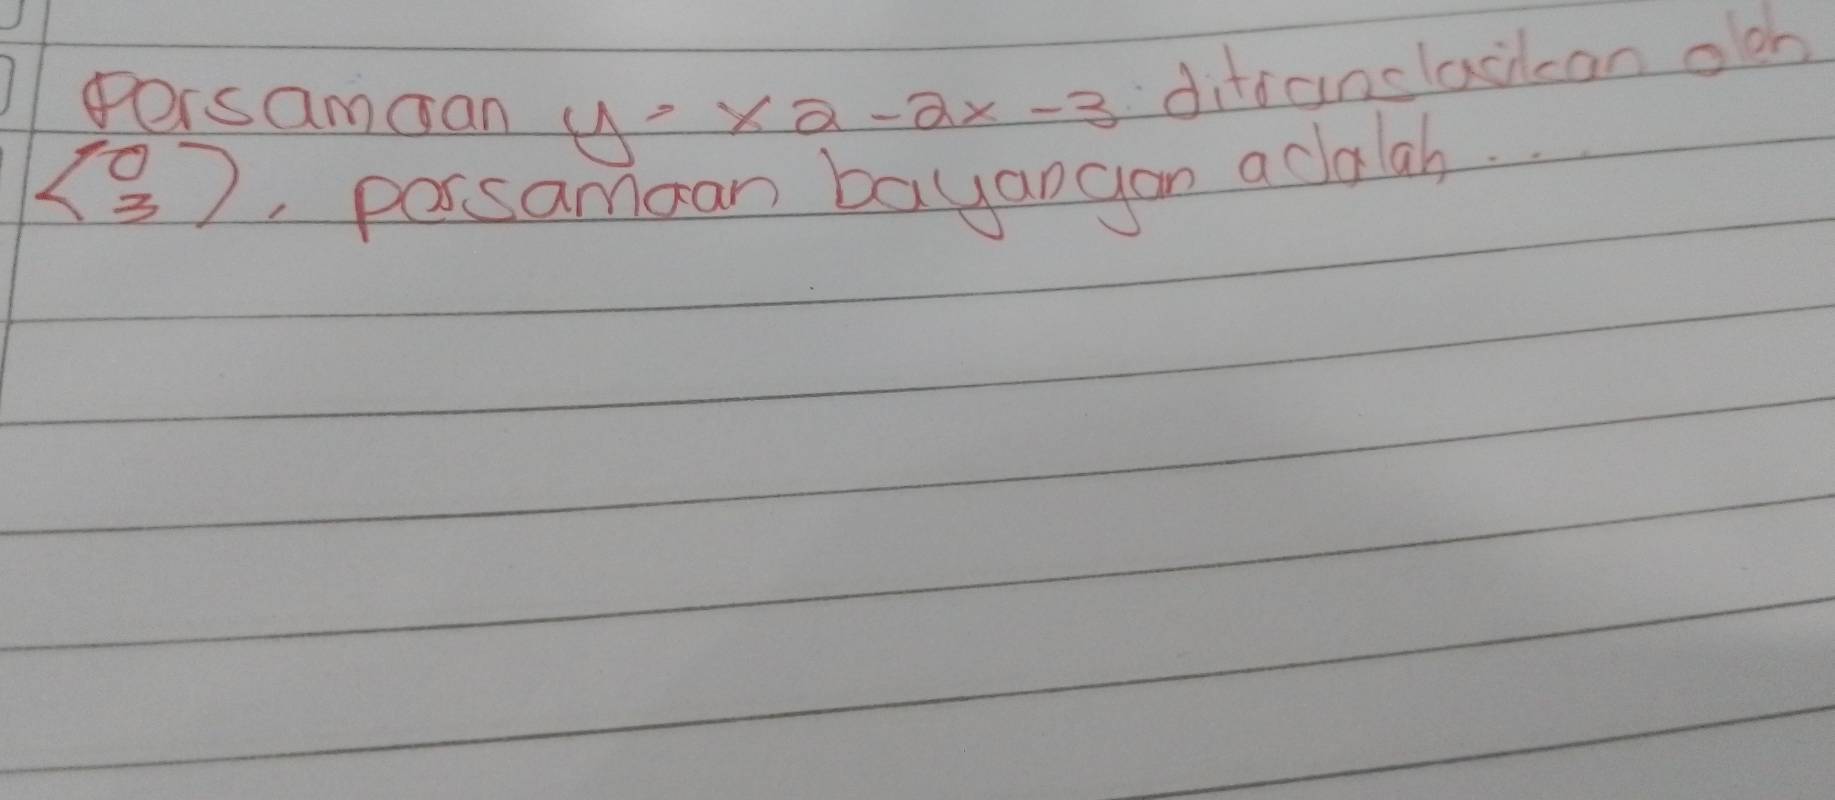 Persamaan y = x2 - 2x - 3 ditranslasikan oleh
(0 3), persamaan bayangan adalah ....